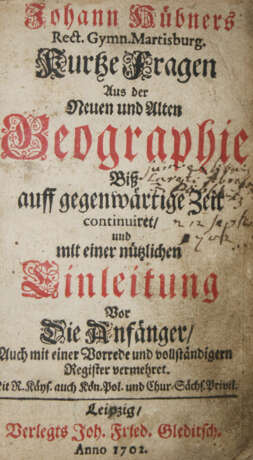 Johann Hübners
Rect. Gymn. Martisburg.
Kurtze Fragen
Aus der
Neuen und Alten
Geographie
Biß
auff gegenwärtige Zeit
continuiret/
und
mit einer nützlichen
Einleitung
Vor
Die Anfänger/
Auch mit einer Vorrede und vollständigern
Register vermehret.
Mit R. Käys. auch Kön. Pol. und Chur-Sächs. Privil.
Leipzig/
Verlegts Joh. Fried. Gleditsch.
Anno 1702.